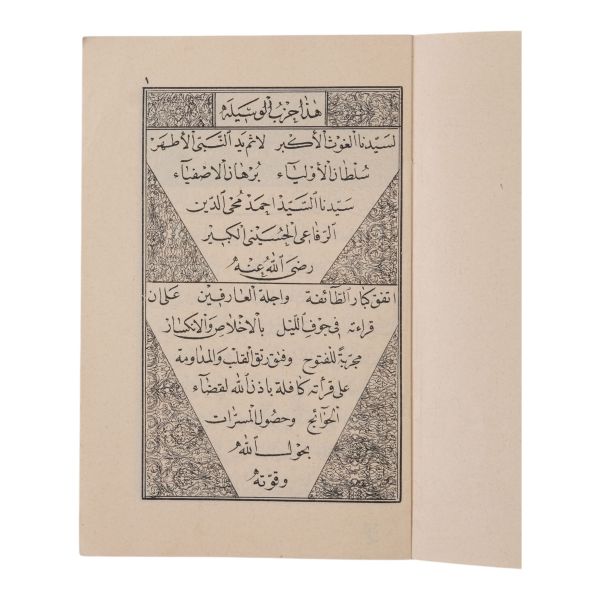 ١
هذا حزب الوسيلة
لسيدنا الغوث الأكبر لاثم يد النبي الأطهر
سلطان الأولياء برهان الاصفياء
سيدنا السيد احمد محي الدين
الرفاعي الحسيني الكبير
رضى الله عنه
اتفق كبار الطائفة واجلة العارفين على ان
قراءته في جوف الليل بالاخلاص والانكسار
مجربة للفتوح وفتق رتق القلب والمداومة
على قرأته كافلة باذن الله لقضاء
الحوائج وحصول المسرات
بحول الله
وقوته